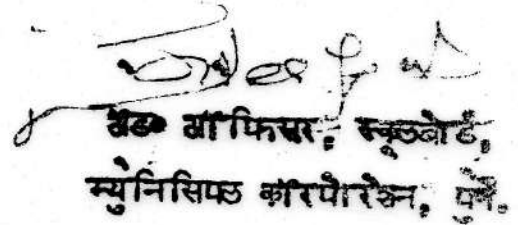 अॅड० ऑफिसर, स्कूलबोर्ड,
म्युनिसिपल कॉरपोरेशन, पुणे.